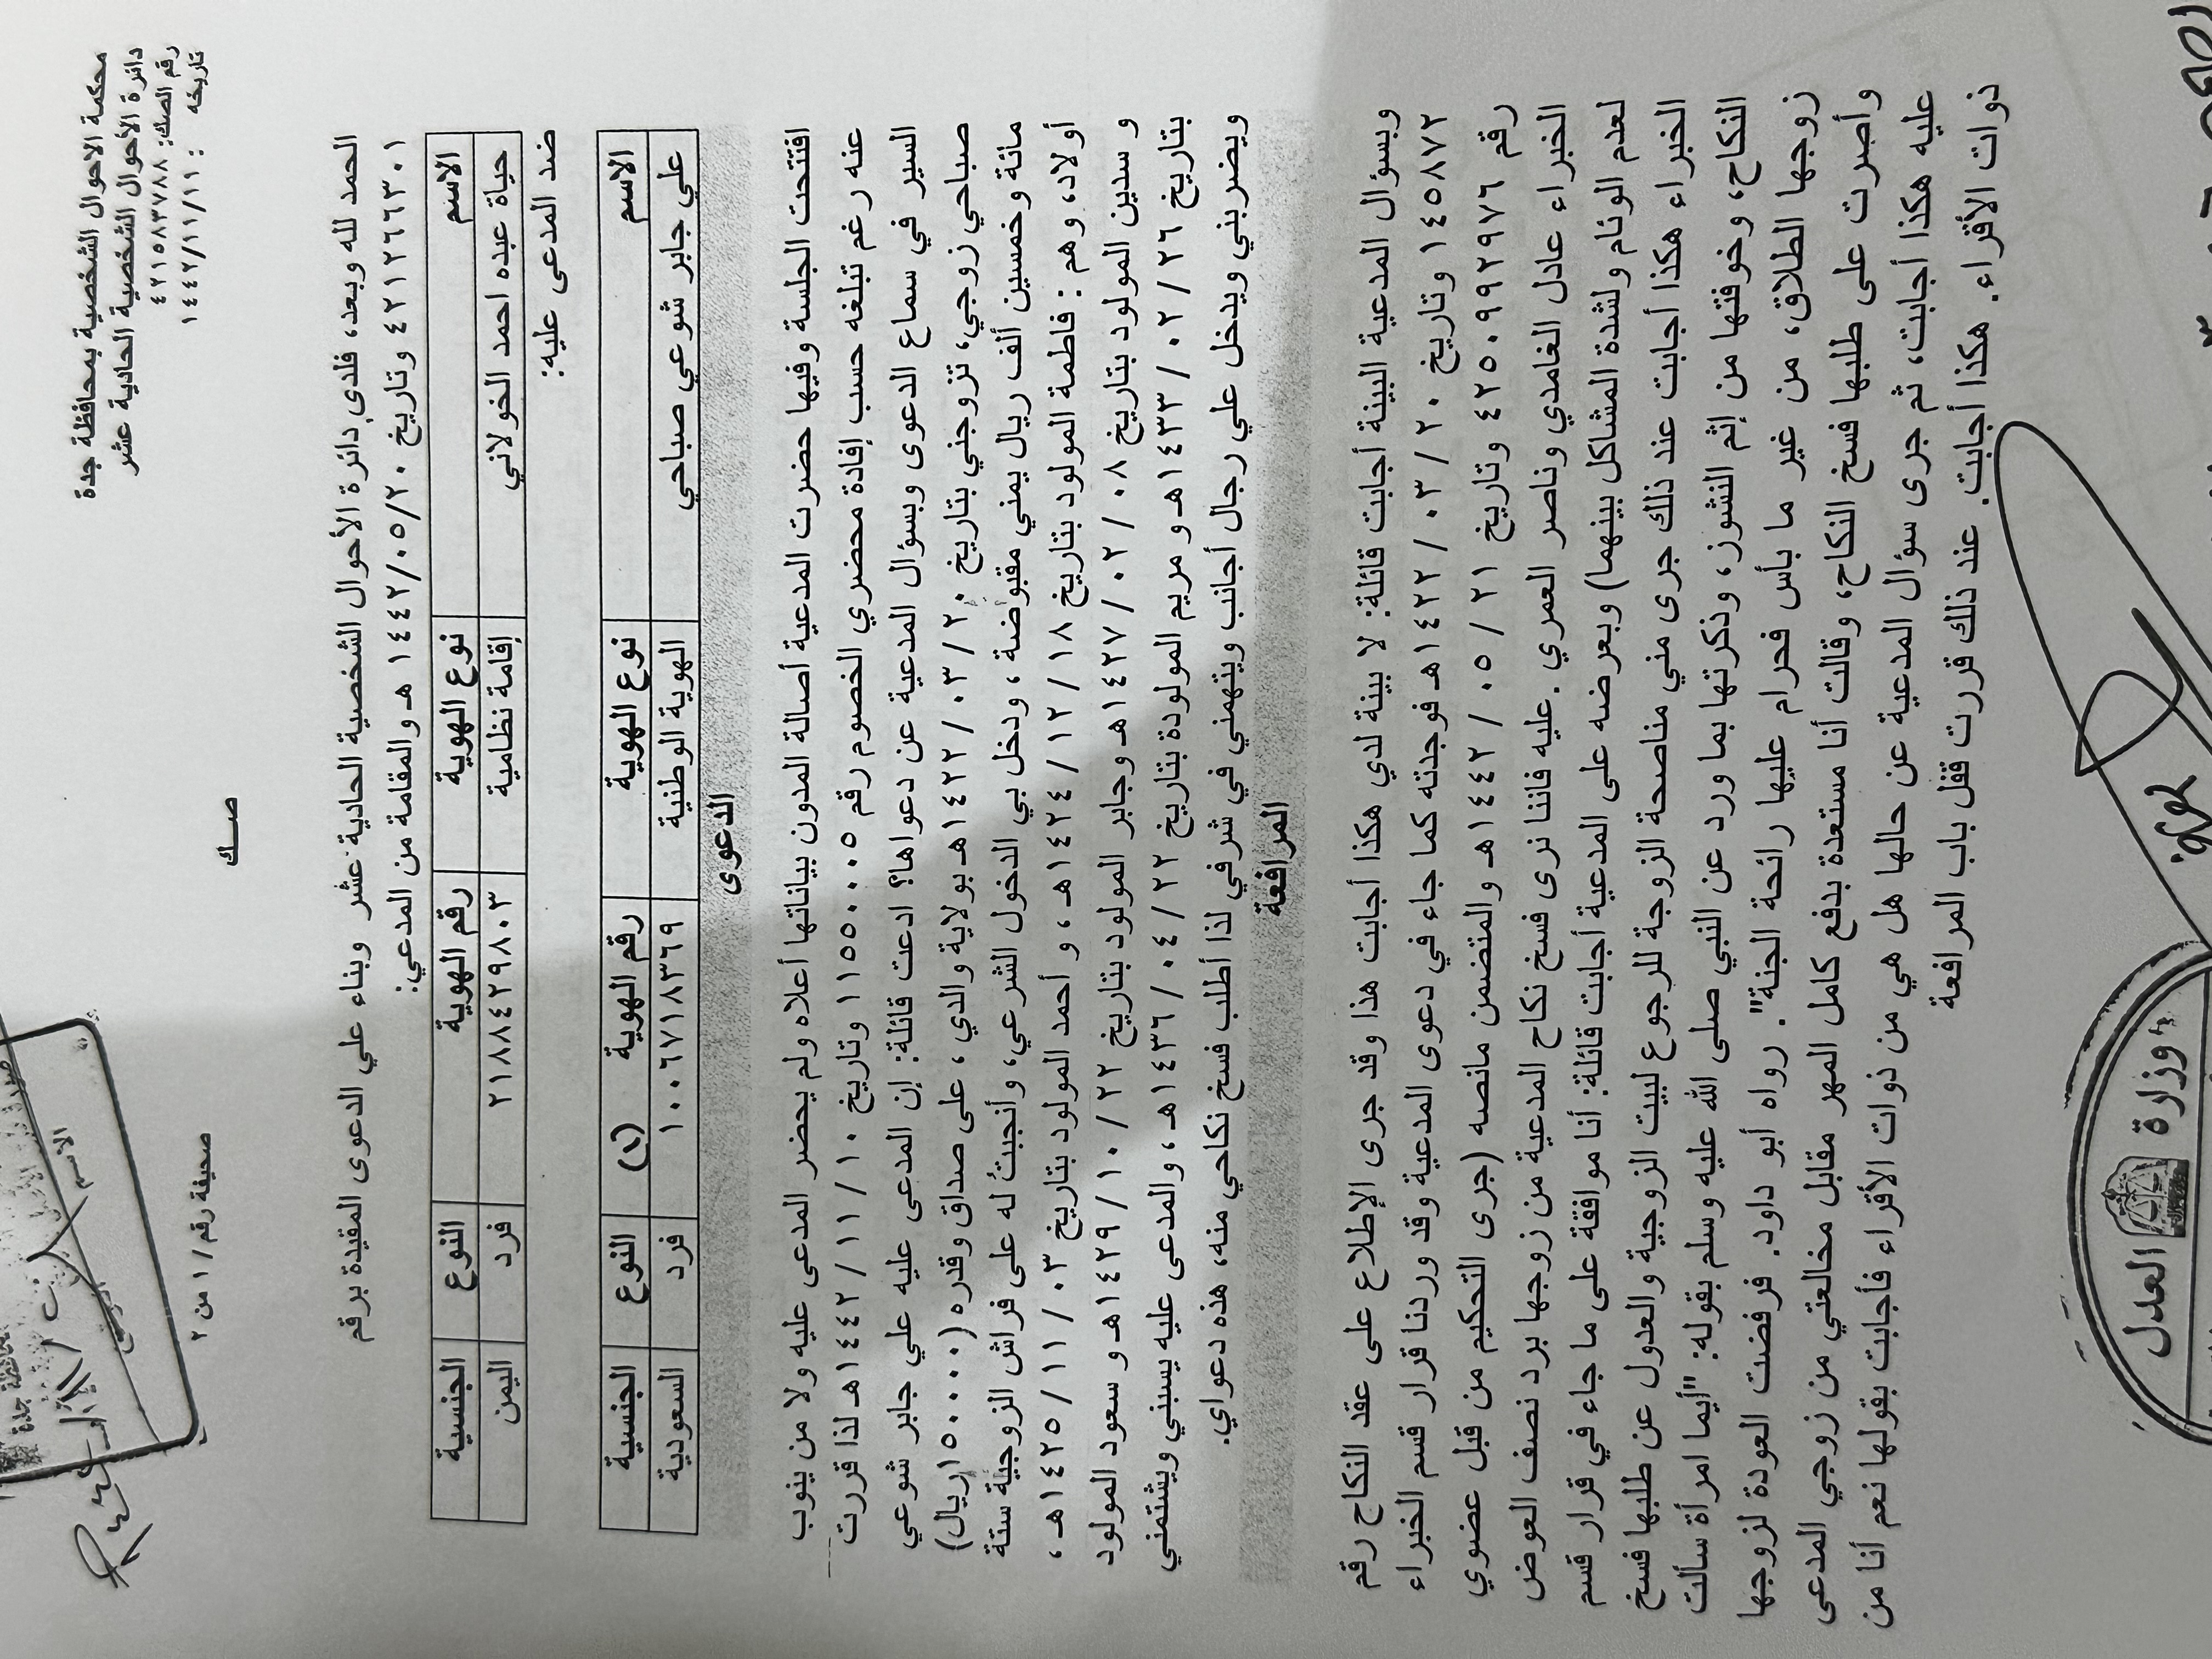 محكمة الاحوال الشخصية بمحافظة جدة
دائرة الأحوال الشخصية الحادية عشر
رقم الصك: ٤٢١٥٨٣٧٨٨
تاريخه : ١٤٤٢/١١/١١
صك
صحيفة رقم / ١ من ٢
الحمد لله وبعد، فلدى دائرة الأحوال الشخصية الحادية عشر وبناء علي الدعوى المقيدة برقم
٤٢١٢٦٦٣٠١ وتاريخ ١٤٤٢/٠٥/٢٠ هـ والمقامة من المدعي:
الاسم نوع الهوية رقم الهوية النوع الجنسية
حياة عبده احمد الخولاني إقامة نظامية ٢١٨٨٤٢٩٨٠٣ فرد اليمن
ضد المدعى عليه:
الاسم نوع الهوية رقم الهوية النوع الجنسية
علي جابر شوعي صباحي الهوية الوطنية ١٠٠٦٧١٨٣٦٩ فرد السعودية
الدعوى
افتتحت الجلسة وفيها حضرت المدعية أصالة المدون بياناتها أعلاه ولم يحضر المدعى عليه ولا من ينوب
عنه رغم تبلغه حسب إفادة محضري الخصوم رقم ١١٥٥٠٠٠٥ وتاريخ ١٠ / ١١ / ١٤٤٢هـ لذا قررت
السير في سماع الدعوى وبسؤال المدعية عن دعواها؟ ادعت قائلة: إن المدعى عليه علي جابر شوعي
صباحي زوجي، تزوجني بتاريخ ٢٠ / ٠٣ / ١٤٢٢هـ بولاية والدي، على صداق وقدره (١٥٠٠٠٠ريال)
مائة وخمسين ألف ريال يمني مقبوضة ، ودخل بي الدخول الشرعي، وأنجبتُ له على فراش الزوجية ستة
أولاد، وهم : فاطمة المولود بتاريخ ١٨ / ١٢ / ١٤٢٤هـ ، و أحمد المولود بتاريخ ٠٣ / ١١ / ١٤٢٥هـ ،
و سدين المولود بتاريخ ٠٨ / ٠٢ / ١٤٢٧هـ وجابر المولود بتاريخ ٢٢ / ١٠ / ١٤٢٩هـ و سعود المولود
بتاريخ ٢٦ / ٠٢ / ١٤٣٣هـ و مريم المولودة بتاريخ ٢٢ / ٠٤ / ١٤٣٦هـ ، والمدعى عليه يسبني ويشتمني
ويضربني ويدخل علي رجال أجانب ويتهمني في شرفي لذا أطلب فسخ نكاحي منه، هذه دعواي.
المرافعة
وبسؤال المدعية البينة أجابت قائلة: لا بينة لدي هكذا أجابت هذا وقد جرى الإطلاع على عقد النكاح رقم
١٤٥٨٧٢ وتاريخ ٢٠ / ٠٣ / ١٤٢٢هـ فوجدته كما جاء في دعوى المدعية وقد وردنا قرار قسم الخبراء
رقم ٤٢٥٠٩٩٢٩٧٦ وتاريخ ٢١ / ٠٥ / ١٤٤٢هـ والمتضمن مانصه (جرى التحكيم من قبل عضوي
الخبراء عادل الغامدي وناصر العمري .عليه فاننا نرى فسخ نكاح المدعية من زوجها برد نصف العوض
لعدم الوئام ولشدة المشاكل بينهما) وبعرضه على المدعية أجابت قائلة: أنا موافقة على ما جاء في قرار قسم
الخبراء هكذا أجابت عند ذلك جرى مني مناصحة الزوجة للرجوع لبيت الزوجية والعدول عن طلبها فسخ
النكاح، وخوفتها من إثم النشوز، وذكرتها بما ورد عن النبي صلى الله عليه وسلم بقوله: "أيما امرأة سألت
زوجها الطلاق، من غير ما بأس فحرام عليها رائحة الجنة". رواه أبو داود. فرفضت العودة لزوجها
وأصرت على طلبها فسخ النكاح، وقالت أنا مستعدة بدفع كامل المهر مقابل مخالعتي من زوجي المدعى
عليه هكذا أجابت، ثم جرى سؤال المدعية عن حالها هل هي من ذوات الأقراء فأجابت بقولها نعم أنا من
ذوات الأقراء. هكذا أجابت. عند ذلك قررت قفل باب المرافعة
وزارة العدل